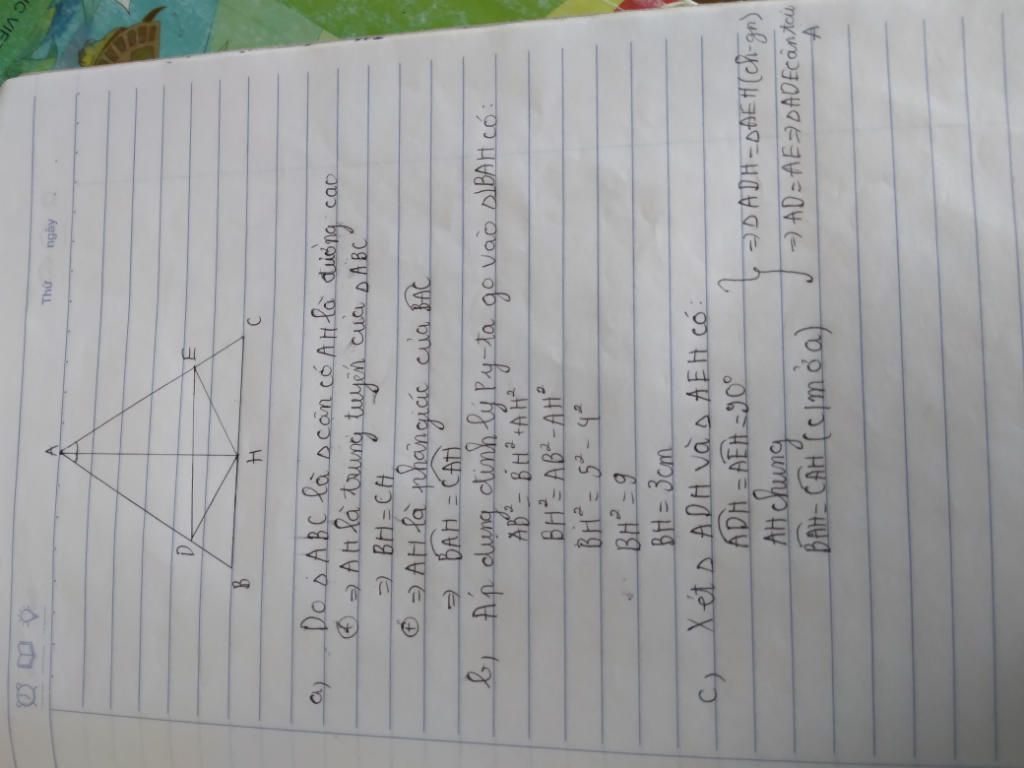 Thứ ngày
A
D
E
B
H
C
a) Do △ABC là △ cân có AH là đường cao
⊕ ⇒ AH là trung tuyến của △ABC
⇒ BH = CH
⊕ ⇒ AH là phân giác của BAC
⇒ BAH = CAH
b) Áp dụng định lý Py-ta go vào △BAH có:
AB² = BH² + AH²
BH² = AB² - AH²
BH² = 5² - 4²
BH² = 9
BH = 3cm
c) Xét △ADH và △AEH có:
ADH = AEH = 90°
AH chung
BAH = CAH (c/m ở a)
} ⇒ △ADH = △AEH (ch-gn)
⇒ AD = AE ⇒ △ADE cân tại
A